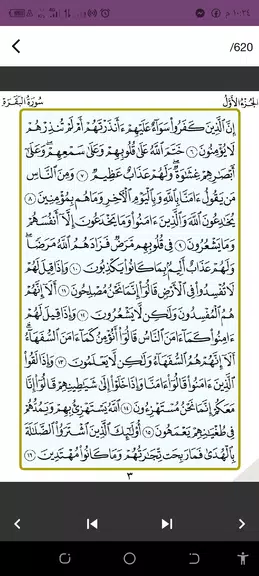 ١٠:٢٤
/620
الجزء الأول
سورة البقرة
إِنَّ ٱلَّذِينَ كَفَرُوا۟ سَوَآءٌ عَلَيْهِمْ ءَأَنذَرْتَهُمْ أَمْ لَمْ تُنذِرْهُمْ
لَا يُؤْمِنُونَ ٦ خَتَمَ ٱللَّهُ عَلَىٰ قُلُوبِهِمْ وَعَلَىٰ سَمْعِهِمْ ۖ وَعَلَىٰٓ
أَبْصَـٰرِهِمْ غِشَـٰوَةٌ ۖ وَلَهُمْ عَذَابٌ عَظِيمٌ ٧ وَمِنَ ٱلنَّاسِ
مَن يَقُولُ ءَامَنَّا بِٱللَّهِ وَبِٱلْيَوْمِ ٱلْـَٔاخِرِ وَمَا هُم بِمُؤْمِنِينَ ٨
يُخَـٰدِعُونَ ٱللَّهَ وَٱلَّذِينَ ءَامَنُوا۟ وَمَا يَخْدَعُونَ إِلَّآ أَنفُسَهُمْ
وَمَا يَشْعُرُونَ ٩ فِى قُلُوبِهِم مَّرَضٌ فَزَادَهُمُ ٱللَّهُ مَرَضًا ۖ
وَلَهُمْ عَذَابٌ أَلِيمٌۢ بِمَا كَانُوا۟ يَكْذِبُونَ ١٠ وَإِذَا قِيلَ لَهُمْ
لَا تُفْسِدُوا۟ فِى ٱلْأَرْضِ قَالُوٓا۟ إِنَّمَا نَحْنُ مُصْلِحُونَ ١١ أَلَآ إِنَّهُمْ
هُمُ ٱلْمُفْسِدُونَ وَلَـٰكِن لَّا يَشْعُرُونَ ١٢ وَإِذَا قِيلَ لَهُمْ
ءَامِنُوا۟ كَمَآ ءَامَنَ ٱلنَّاسُ قَالُوٓا۟ أَنُؤْمِنُ كَمَآ ءَامَنَ ٱلسُّفَهَآءُ ۗ
أَلَآ إِنَّهُمْ هُمُ ٱلسُّفَهَآءُ وَلَـٰكِن لَّا يَعْلَمُونَ ١٣ وَإِذَا لَقُوا۟
ٱلَّذِينَ ءَامَنُوا۟ قَالُوٓا۟ ءَامَنَّا وَإِذَا خَلَوْا۟ إِلَىٰ شَيَـٰطِينِهِمْ قَالُوٓا۟ إِنَّا
مَعَكُمْ إِنَّمَا نَحْنُ مُسْتَهْزِءُونَ ١٤ ٱللَّهُ يَسْتَهْزِئُ بِهِمْ وَيَمُدُّهُمْ
فِى طُغْيَـٰنِهِمْ يَعْمَهُونَ ١٥ أُو۟لَـٰٓئِكَ ٱلَّذِينَ ٱشْتَرَوُا۟ ٱلضَّلَـٰلَةَ
بِٱلْهُدَىٰ فَمَا رَبِحَت تِّجَـٰرَتُهُمْ وَمَا كَانُوا۟ مُهْتَدِينَ ١٦
٣